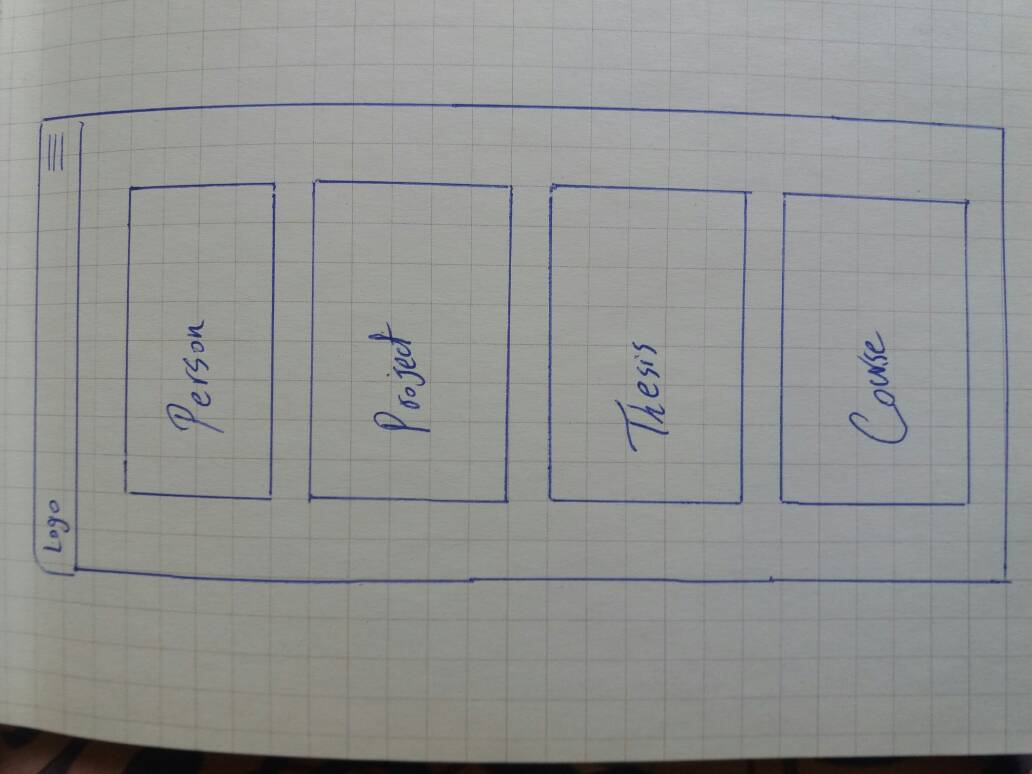 Logo
Person
Project
Thesis
Course